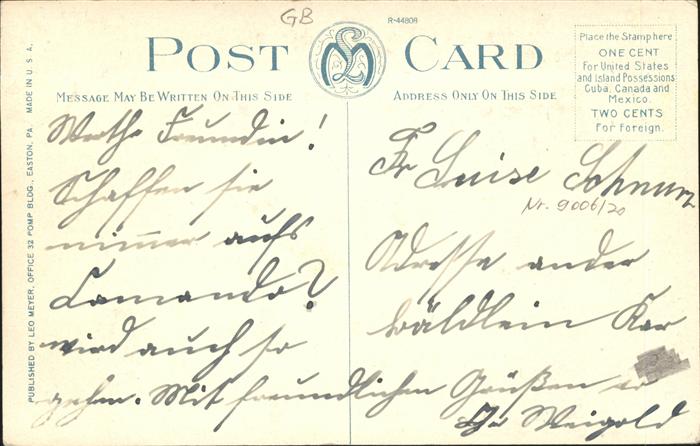 GB
R-44808
POST CARD
MESSAGE MAY BE WRITTEN ON THIS SIDE
ADDRESS ONLY ON THIS SIDE
Place the Stamp here
ONE CENT
For United States
and Island Possessions
Cuba, Canada and
Mexico.
TWO CENTS
For Foreign.
PUBLISHED BY LEO MEYER, OFFICE 32 POMP BLDG., EASTON, PA. MADE IN U. S. A.
Werthe Freundin!
Schaffen sie
nimmer aufs
Comando?
wird auch so
gehn. Mit freundlichen Grüßen
Weigold
Fr Luise Schnurr
Nr. 9006/20
Adresse ander
Wäldlein Kar